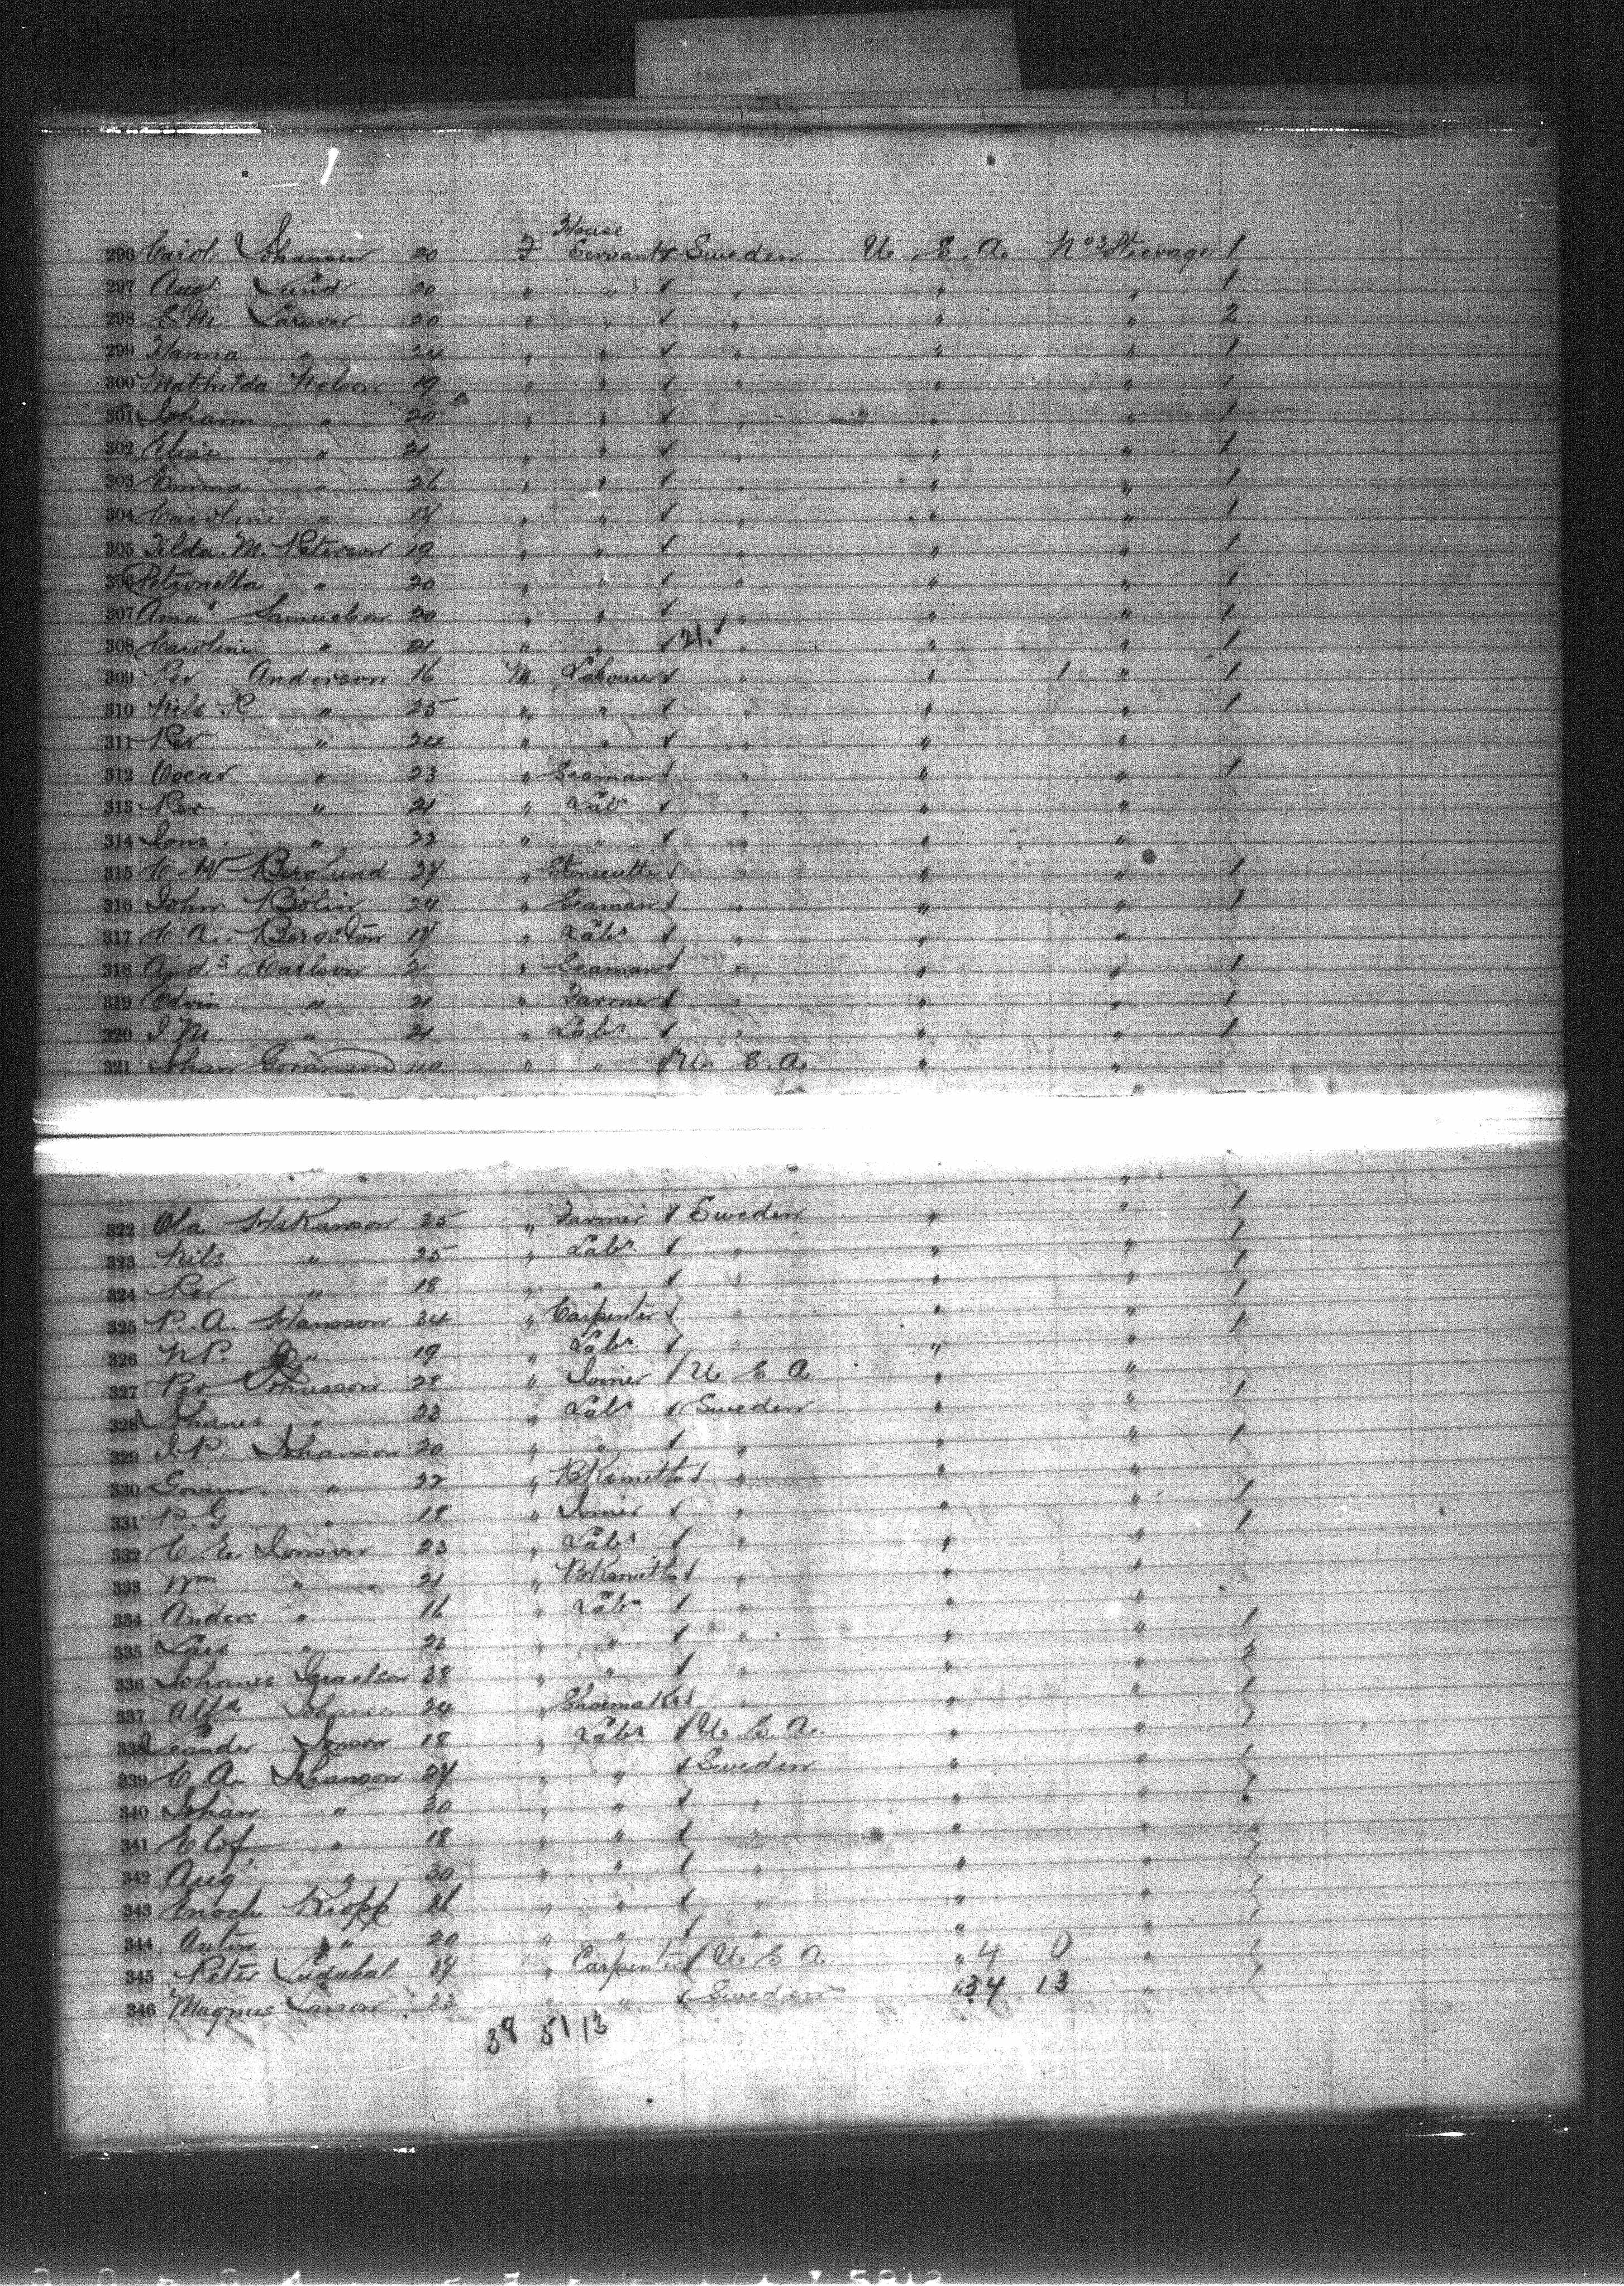 House
296 Carol Johansen 20 F Servant Sweden U. S. A. No 3 Steerage 1
297 Aug. Lund 20 " " " " " 1
298 E M. Larson 20 " " " " " 2
299 Hanna " 24 " " " " " 1
300 Mathilda Nelson 19 " " " " " 1
301 Johann " 20 " " " " " 1
302 Elise " 21 " " " " " 1
303 Emma " 26 " " " " " 1
304 Caroline " " " " " " 1
305 Tilda. M. Peterson 19 " " " " " 1
306 Petronella " 20 " " " " " 1
307 Ama Samuelson 20 " " " " " 1
308 Caroline " 21 " " 21. " " " 1
309 Per Anderson 16 M Labourer " " 1 " 1
310 Nils P " 25 " " " " " 1
311 Per " 24 " " " " "
312 Oscar " 23 " Seaman " " " 1
313 Per " 21 " Labr " " "
314 Jons. " 22 " " " " "
315 C. W Berglund 27 " Stonecutter " " " 1
316 John Bolin 24 " Seaman " " " 1
317 C. A. Bergston " Labr " " "
318 And.s Carlson 21 " Seaman " " " 1
319 Edvin " 21 " Farmer " " " 1
320 J M. " 21 " Labr " " " 1
321 Johan Goranson 40 " " U. S. A. " "
322 Ola Hakanson 35 " Farmer Sweden " " 1
323 Nils " 25 " Labr " " " 1
324 Per " 18 " " " " " 1
325 P. A. Hansson 34 " Carpenter " " " 1
326 N P. " 19 " Labr " " " 1
327 Per Johnsson 28 " Joiner U S A " "
328 Johanes " 23 " Labr Sweden " " 1
329 J. P. Johanson 20 " " " " " 1
330 " 22 " Bksmith " " "
331 P. G " 18 " Joiner " " " 1
332 C. E. Jonson 23 " Labr " " " 1
333 Wm " 21 " Bksmith " " "
334 Anders " 16 " Labr " " "
335 Lars " 26 " " " " " 1
336 Johanes Israelson 38 " " " " "
337 Alfd 24 " Shoemaker " " " 1
338 Leander Jonson 18 " Labr U. S. A. " "
339 C A. Johanson 27 " " Sweden " " 1
340 Johan " 30 " " " " " 1
341 Olof " 18 " " " " "
342 Aug. " 30 " " " " "
343 Enoch Kropp " " " " "
344 Anton " 20 " " " " "
345 Peter " Carpenter U S A. " 4 0 "
346 Magnus Larson 23 " " Sweden " 34 13 "
38 51 13